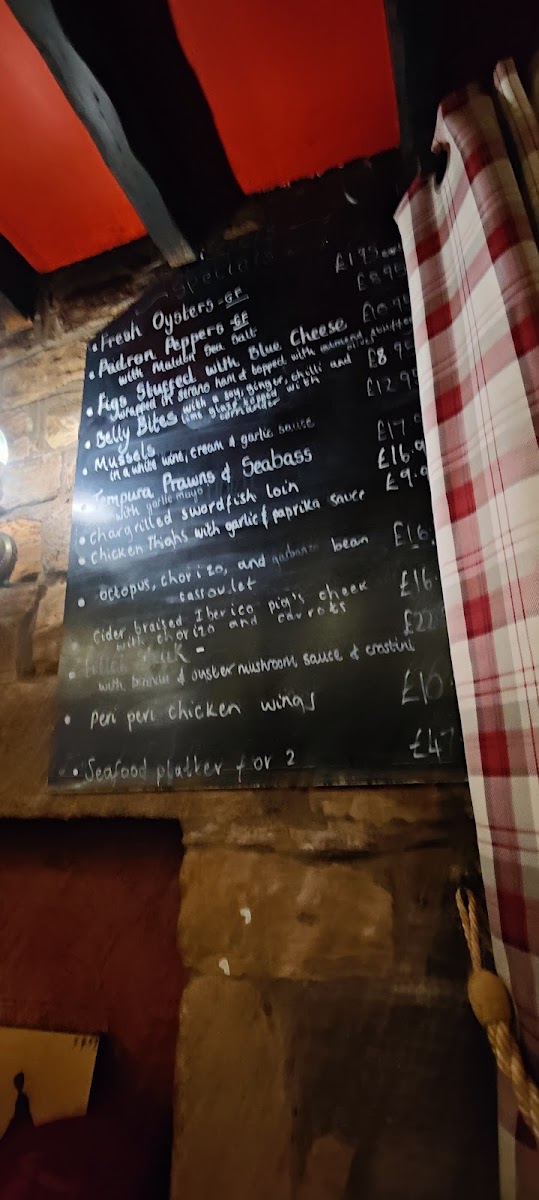 Specials
• Fresh Oysters - GF £1.95
• Padron Peppers - GF £8.95
with Maldon Sea Salt
• Figs Stuffed with Blue Cheese £10.95
wrapped in serano ham & topped with
• Belly Bites with a soy, ginger, chilli and £8.95
lime glaze topped with
• Mussels £12.95
in a white wine, cream & garlic sauce
• Tempura Prawns & Seabass £17.9
with garlic mayo
• chargrilled swordfish loin £16.9
• chicken Thighs with garlic & paprika sauce £9.9
• octopus, chorizo, and garbanzo bean £16.
cassoulet
• cider braised Iberico pig's cheek £16
with chorizo and carrots
• fillet £22
with & oyster mushroom sauce & crostini
• peri peri chicken wings £10
• Seafood platter for 2 £47